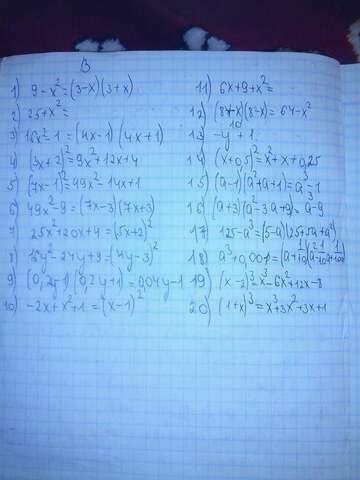 В
1) 9-x²=(3-x)(3+x)
2) 25+x²=
3) 16x²-1=(4x-1)(4x+1)
4) (3x+2)²=9x²+12x+4
5) (7x-1)²=49x²-14x+1
6) 49x²-9=(7x-3)(7x+3)
7) 25x²+20x+4=(5x+2)²
8) 16y²-24y+9=(4y-3)²
9) (0,2y-1)(0,2y+1)=0,04y-1
10) -2x+x²+1=(x-1)²
11) 6x+9+x²=
12) (8+x)(8-x)=64-x²
13) -y¹⁰+1
14) (x+0,5)²=x²+x+0,25
15) (a-1)(a²+a+1)=a³-1
16) (a+3)(a²-3a+9)=a³-9
17) 125-a³=(5-a)(25+5a+a²)
18) a³+0,001=(a+1/10)(a²-1/10a+1/100)
19) (x-2)³=x³-6x²+12x-8
20) (1+x)³=x³+3x²+3x+1